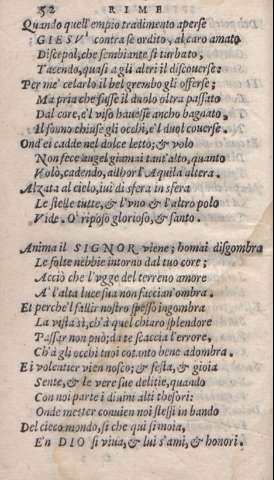 52 RIME
Quando quell'empio tradimento aperse
GIESV' contra se ordito, al caro amato
Discepol, che sembiante si turbato,
Tacendo, quasi a gli altri il discouerse:
Per me' celarlo il bel grembo gli offerse;
Ma pria che fusse il duolo oltra passato
Dal core, e'l viso hauesse ancho bagnato,
Il sonno chiuse gli occhi, e'l duol couerse.
Ond'ei cadde nel dolce letto; & volo
Non fece augel giamai tant'alto, quanto
Volò, cadendo, allhor l'Aquila altera.
Alzata al cielo, iui di sfera in sfera
Le stelle tutte, & l'vno & l'altro polo
Vide. O' riposo glorioso, & santo.
Anima il SIGNOR viene; homai disgombra
Le folte nebbie intorno dal tuo core;
Acciò che l'vgge del terreno amore
A' l'alta luce sua non faccian'ombra.
Et perche'l fallir nostro spesso ingombra
La vista sì, ch'à quel chiaro splendore
Passar non può; date scaccia l'errore,
Ch'à gli occhi tuoi cotanto bene adombra.
Ei volentier vien nosco; & festa, & gioia
Sente, & le vere sue delitie, quando
Con noi parte i diuini alti thesori:
Onde mester conuien noi stessi in bando
Del cieco mondo, si che qui si moia,
En DIO si viua, & lui s'ami, & honori.